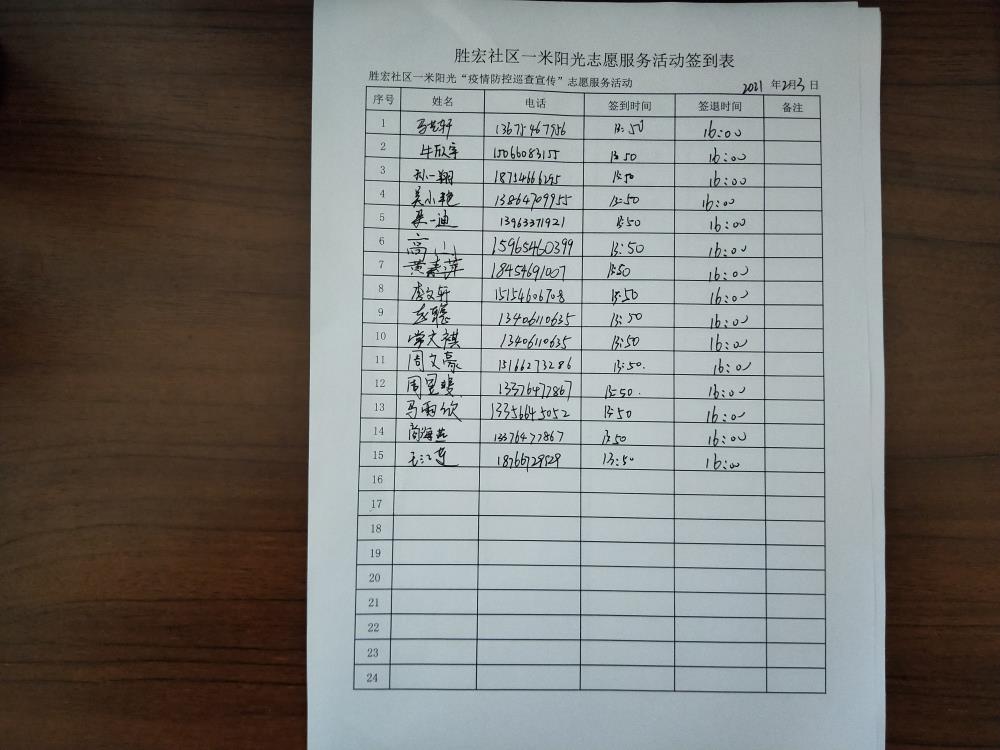 胜宏社区一米阳光志愿服务活动签到表
胜宏社区一米阳光“疫情防控巡查宣传”志愿服务活动 2021 年2月3日
序号 姓名 电话 签到时间 签退时间 备注
1 13675467956 13:50 16:00
2 牛欣宇 15066083155 13:50 16:00
3 孙一翔 13:50 16:00
4 吴小艳 13864709955 13:50 16:00
5 一迪 13963371921 13:50 16:00
6 高山 15965460399 13:50 16:00
7 黄嘉萍 18454691007 13:50 16:00
8 李文轩 15154606708 13:50 16:00
9 13406110635 13:50 16:00
10 常文祺 13406110635 13:50 16:00
11 周文豪 15166273286 13:50. 16:00
12 周 13376477867 13:50. 16:00
13 马雨欣 13356645052 13:50 16:00
14 商海燕 13376477867 13:50 16:00
15 毛江莲 18766729529 13:50 16:00
16
17
18
19
20
21
22
23
24